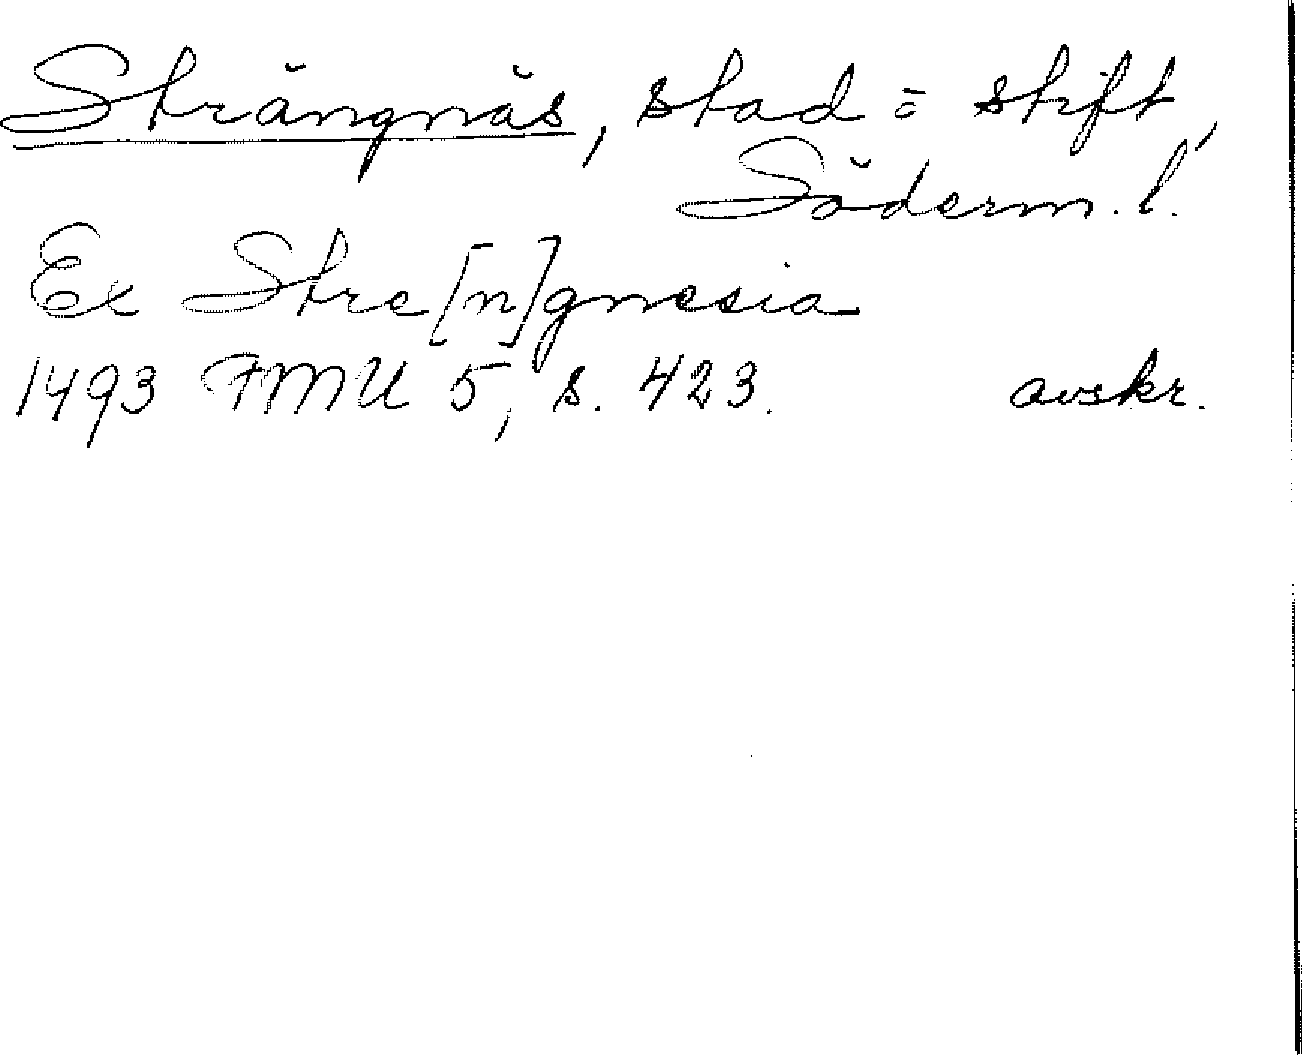 Strängnäs, stad = stift,
Söderm. l.
Ex Stre[n]gnesia
1493 FMU 5, s. 423. avskr.